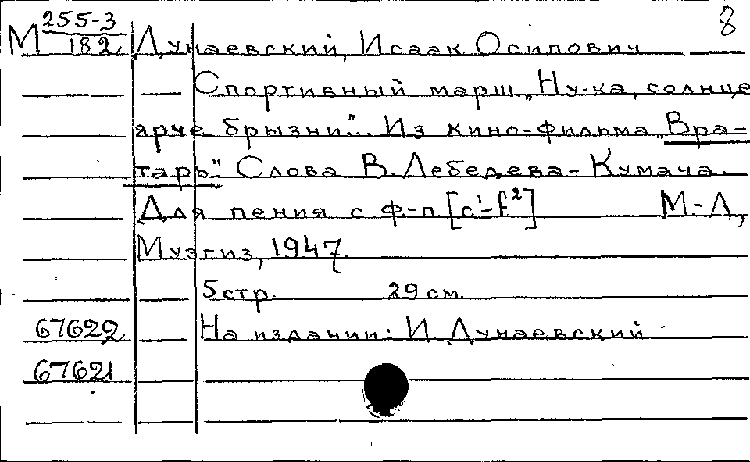 8
255-3
М 182 Дунаевский, Исаак Осипович
Спортивный марш „Ну-ка, солнце
ярче брызни". Из кино-фильма „Вра-
тарь". Слова В. Лебедева-Кумача.
Для пения с ф-п. [c¹-f²] М.-Л,
Музгиз, 1947.
5 стр. 29 см.
67622 На издании: И. Дунаевский
67621